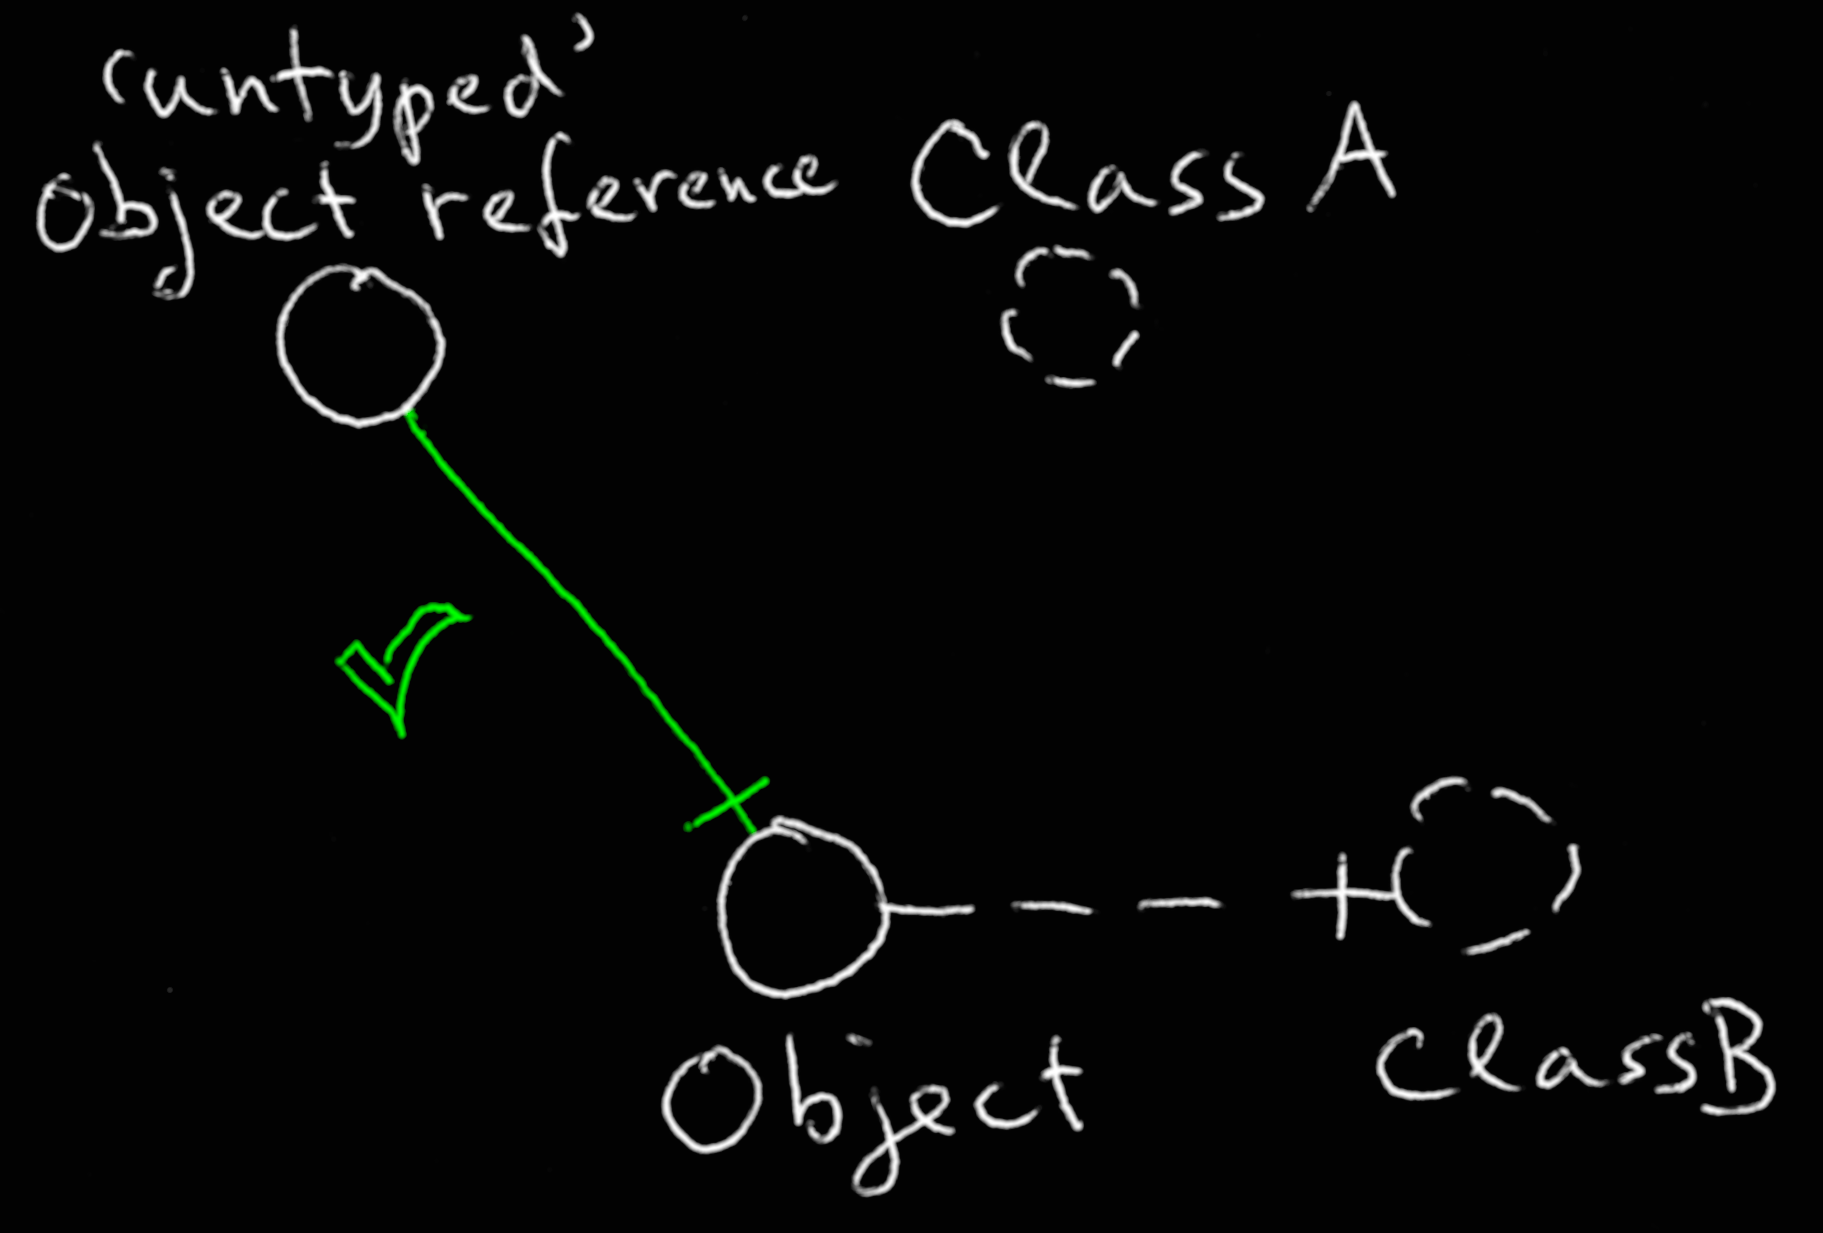 'untyped'
Object reference
Class A
Object
Class B